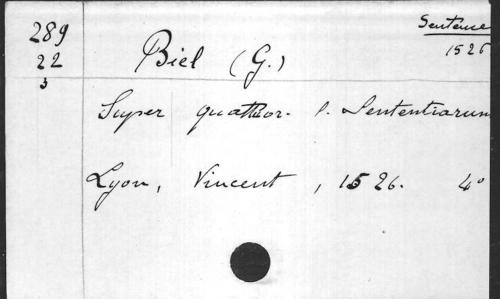 289
22
3
Sentence
1526
Biel (G.)
Super quattuor l. Sententiarum
Lyon, Vincent, 1526. 4°